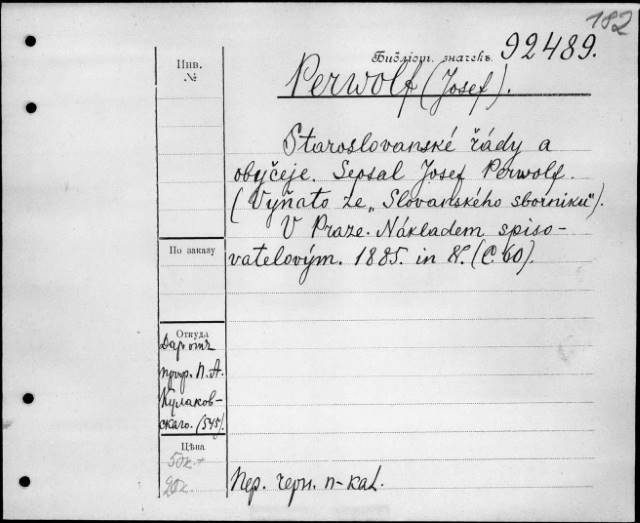 182
Инв.
№
Библіогр. значекъ 92489.
Perwolf (Josef).
Staroslovanské řády a
obyčeje. Sepsal Josef Perwolf.
(Vyňato ze „Slovanského sborníku“).
V Praze. Nákladem spiso-
vatelovým. 1885. in 8°. (C. 60).
По заказу
Откуда
Дар отъ
проф. П. А.
Кулаков-
скаго. (545).
Цѣна
50к.
20к.
Пер. черн. п-каl.